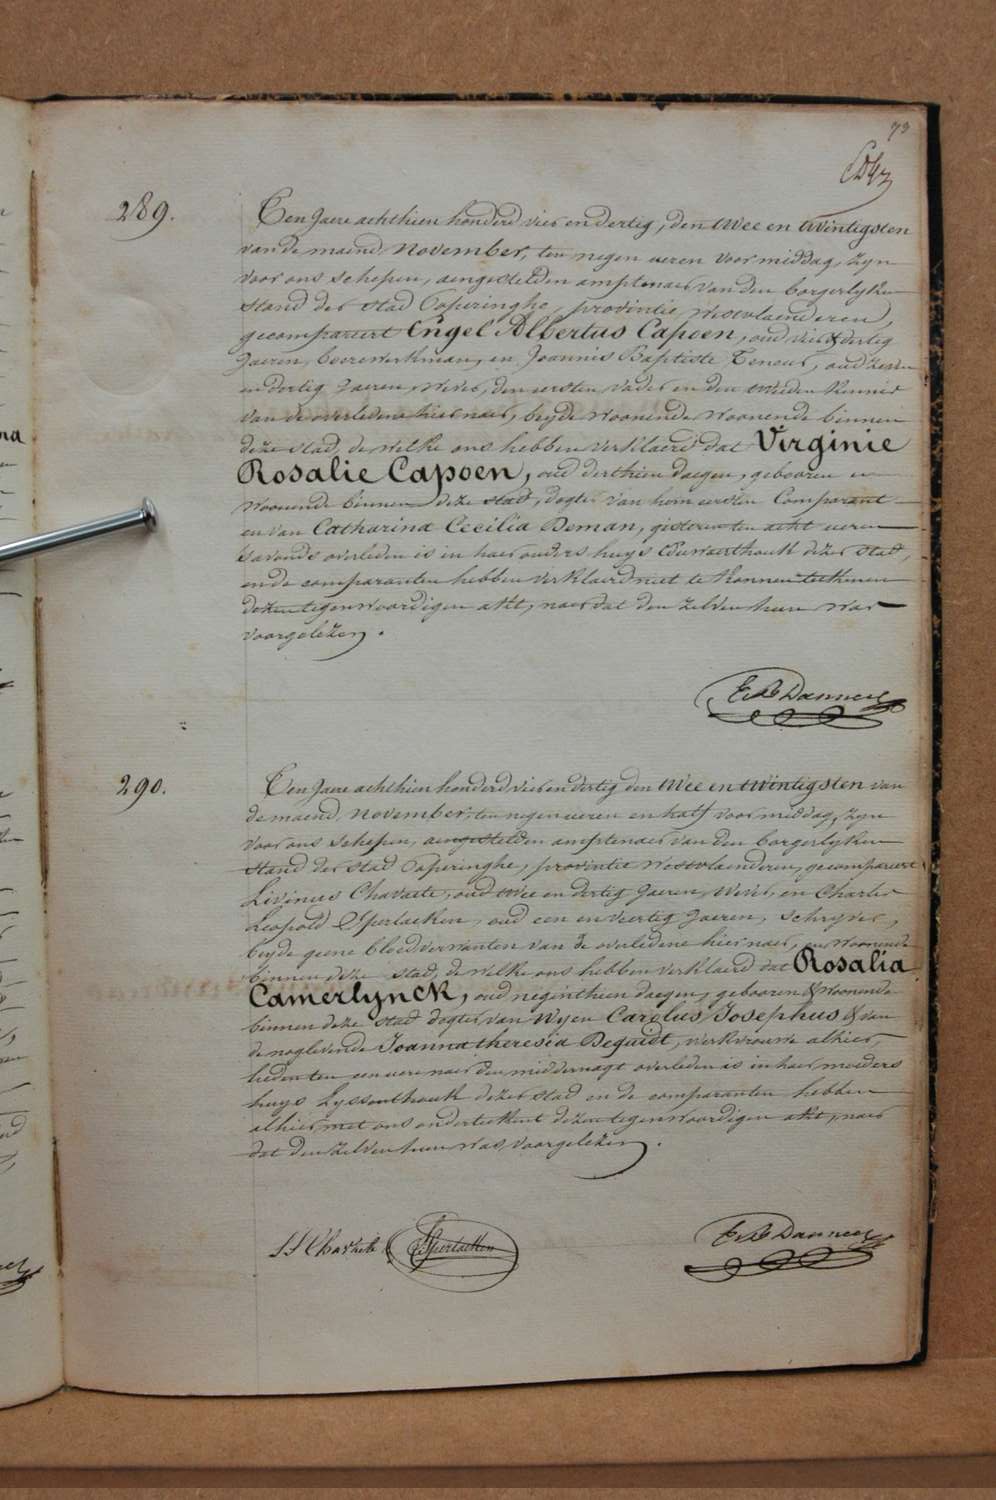 73
289.
Ten Jaere achthien honderd vier en dertig, den twee en twintigsten
van de maend November, ten negen ueren voormiddag, zyn
voor ons schepen, aengestelden amptenaer van den borgerlyken
stand der stad Poperinghe, provintie Westvlaenderen,
gecompareert Engel Albertus Capoen, oud vier & dertig
Jaeren, boerewerkman, en Joannis Baptiste Teneur, oud zeven
en dertig Jaeren, wever, den eersten vader en den tweeden kennis
van de overledene hier naer, beyde woonende woonende binnen
deze stad, de welke ons hebben verklaerd dat Virginie
Rosalie Capoen, oud derthien daegen, gebooren en
woonende binnen deze stad, dogter van hem eersten Comparant
en van Catharina Cecilia Deman, gisteren ten acht ueren
s'avonds overleden is in haer ouders huys Couwaerthoek dezer stad,
en de comparanten hebben verklaerd niet te konnen teekenen
dezen tegenwoordigen akt, naer dat den zelven hun was
voorgelezen.
290.
Ten Jaere achthien honderd vier en dertig den twee en twintigsten van
de maend November, ten negen ueren en half voormiddag, zyn
voor ons schepen, aengestelden amptenaer van den borgerlyken
stand der stad Poperinghe, provintie Westvlaenderen, gecompareert
Livinus Chavaete, oud twee en dertig Jaeren, wever, en Charles
Leopold D'Sperlaeken, oud een en veertig Jaeren, schryver,
beyde geene bloedverwanten van de overledene hier naer, en woonende
binnen deze stad, de welke ons hebben verklaerd dat Rosalia
Camerlynck, oud neginthien daegen, gebooren & woonende
binnen deze stad dogter van wyen Carolus Josephus & van
de noglevende Joanna theresia Deguidt, werkvrouwe alhier,
heden ten een uere naer den middernagt overleden is in haer moeders
huys Lyssenthoek dezer stad en de comparanten hebben
alhier met ons onderteekent dezen tegenwoordigen akt, naer
dat den zelven hun was voorgelezen.